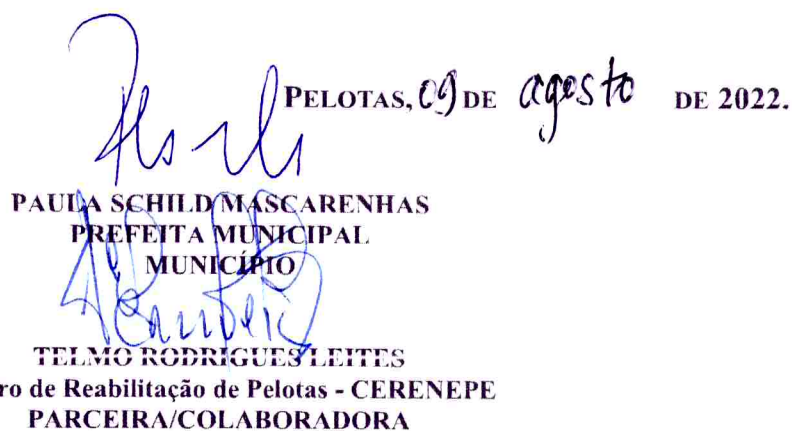 PELOTAS, 09 DE agosto DE 2022.
PAULA SCHILD MASCARENHAS
PREFEITA MUNICIPAL
MUNICÍPIO
TELMO RODRIGUES LEITES
ro de Reabilitação de Pelotas - CERENEPE
PARCEIRA/COLABORADORA